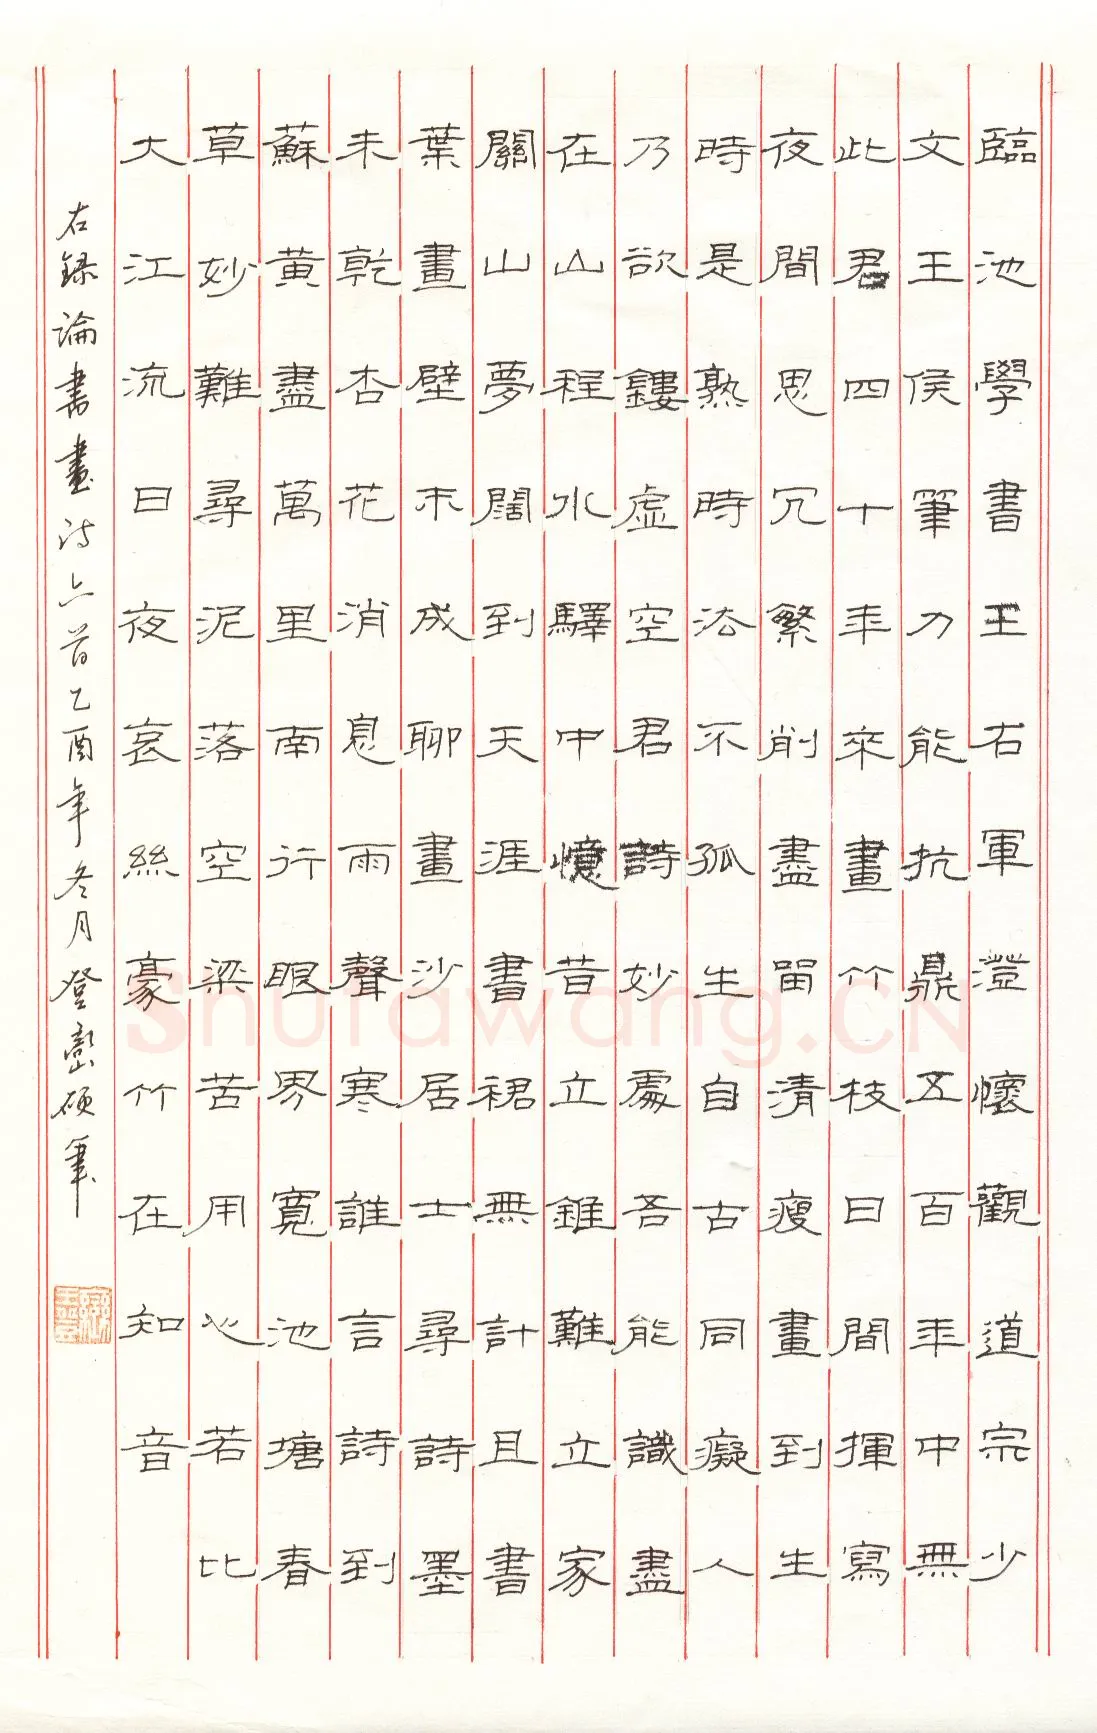 臨池學書王右軍澄懷觀道宗少
文王侯筆力能抗鼎五百年中無
此君四十年來畫竹枝日間揮寫
夜間思冗繁削盡留清瘦畫到生
時是熟時法不孤生自古同癡人
乃欲鏤虛空君詩妙處吾能識盡
在山程水驛中憶昔立錐難立家
關山夢闊到天涯書裙無計且書
葉畫壁不成聊畫沙居士尋詩墨
未乾杏花消息雨聲寒誰言詩到
蘇黃盡萬里南行眼界寬池塘春
草妙難尋泥落空梁苦用心若比
大江流日夜哀絲豪竹在知音
右録論書畫詩六首乙酉年冬月登巒硬筆
Shufawang.CN